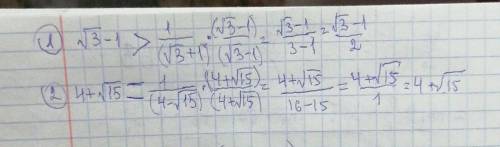 ① √3-1 > 1/(√3+1) · (√3-1)/(√3-1) = (√3-1)/(3-1) = (√3-1)/2
② 4+√15 = 1/(4-√15) · (4+√15)/(4+√15) = (4+√15)/(16-15) = (4+√15)/1 = 4+√15